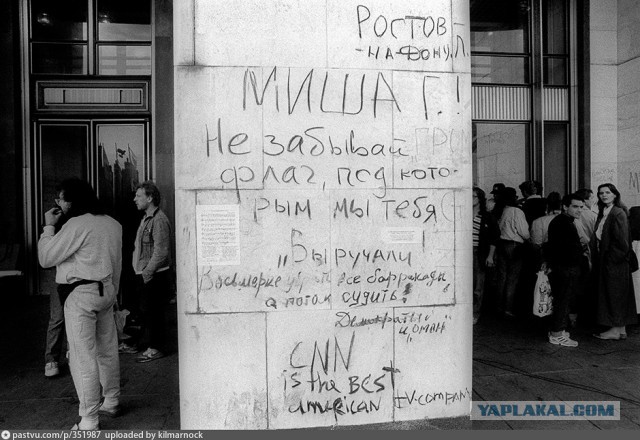 РОСТОВ-
-НА-ДОНУ.
МИША Г.!
Не забывай
флаг, под кото-
рым мы тебя
„Выручали!
Восьмерке убрать все баррикады
а потом судить!
CNN
is the BEST
american TV-company
YAPLAKAL.COM
pastvu.com/p/351987 uploaded by kilmarnock